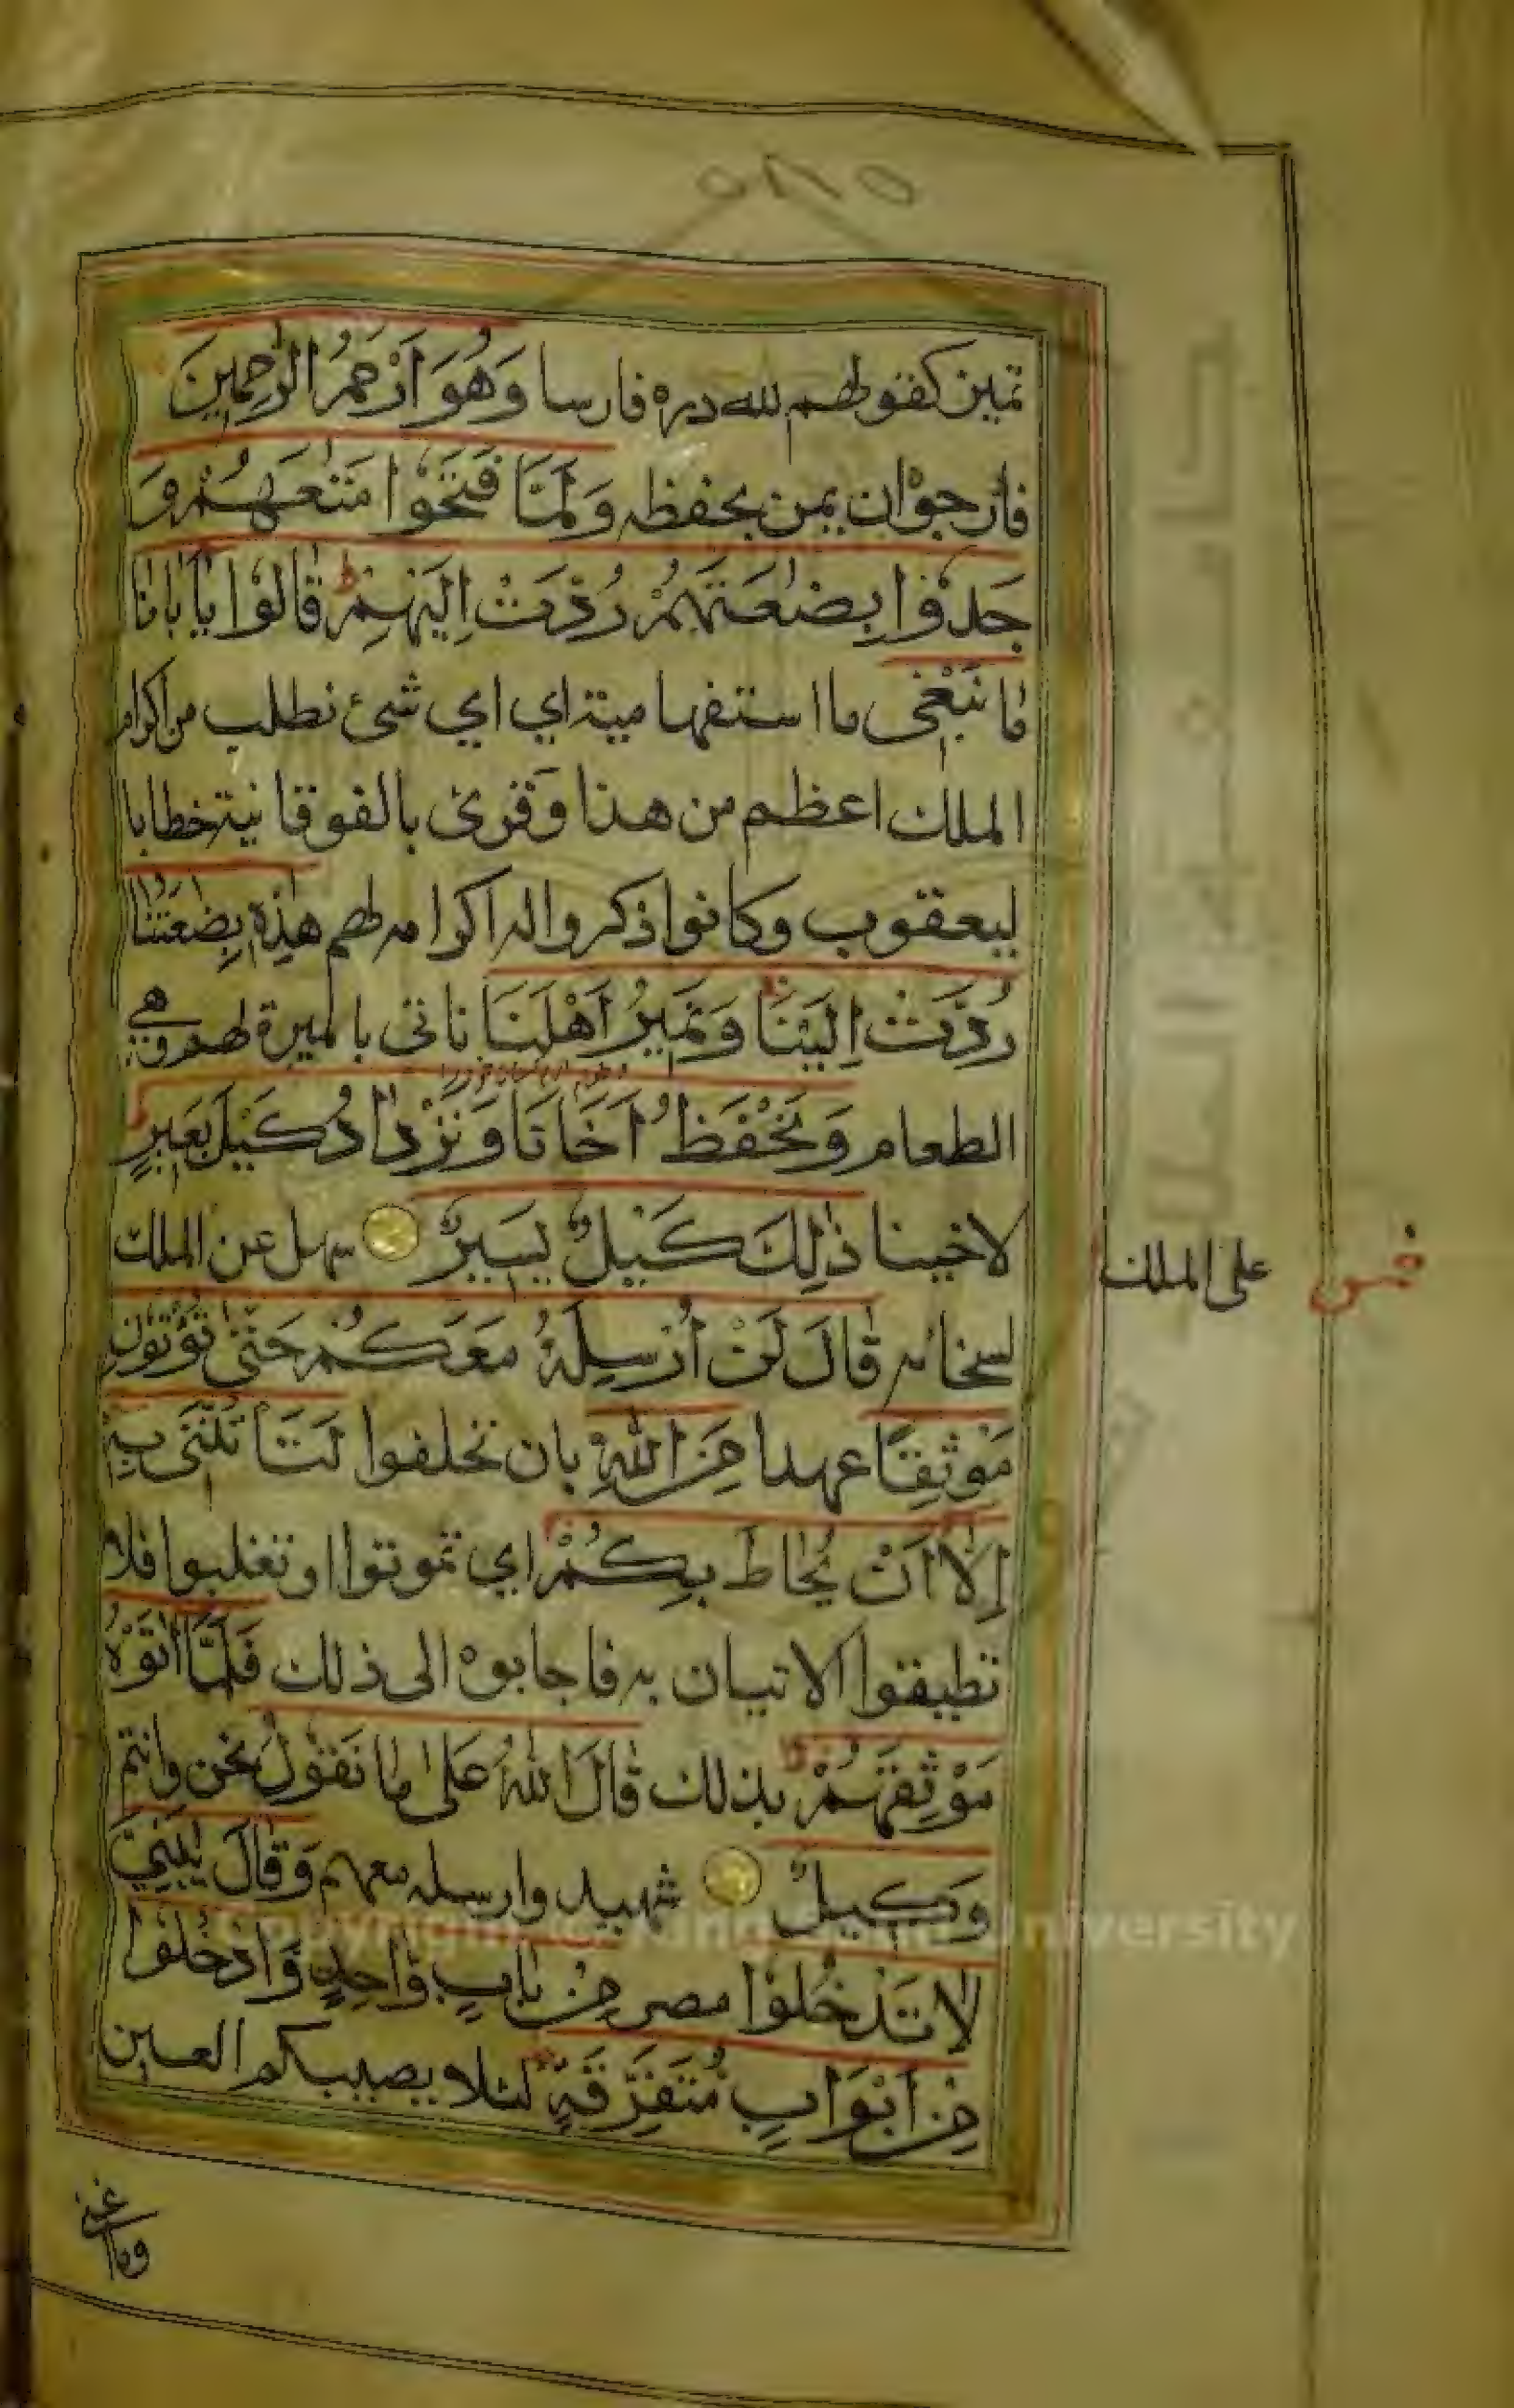 تميز كقولهم لله دره فارسا وَهُوَ اَرْحَمُ الرّٰحِمِينَ
فارجوان يمن بحفظه وَلَمَّا فَتَحُوْا مَتٰعَهُمْ وَ
جَدُوْا بِضٰعَتَهُمْ رُدَّتْ اِلَيْهِمْ ط قَالُوْا يٰاَبَانَا
مَا نَبْغِى ما استفهامية اي اي شئ نطلب من اكرام
الملك اعظم من هذا وقرئ بالفوقانية خطابا
ليعقوب وكانوا ذكروا له اكرامه لهم هٰذِهِ بِضٰعَتُنَا
رُدَّتْ اِلَيْنَا وَنَمِيْرُ اَهْلَنَا ناتى بالميرة لهم وهي
الطعام وَنَحْفَظُ اَخَانَا وَنَزْدَادُ كَيْلَ بَعِيْرٍ
لاخينا ذٰلِكَ كَيْلٌ يَسِيْرٌ سهل عن الملك
على الملك
لسخائه قَالَ لَنْ اُرْسِلَهُ مَعَكُمْ حَتّٰى تُؤْتُوْنِ
مَوْثِقًا عهدا مِنَ اللّٰهِ بان تحلفوا لَتَأْتُنَّنِى بِهٖ
اِلَّا اَنْ يُحَاطَ بِكُمْ اي تموتوا او تغلبوا فلا
تطيقوا الاتيان به فاجابوه الى ذلك فَلَمَّا اٰتَوْهُ
مَوْثِقَهُمْ بذلك قَالَ اللّٰهُ عَلٰى مَا نَقُوْلُ نحن وانتم
وَكِيْلٌ شهيد وارسله معهم وَقَالَ يٰبَنِيَّ
لَا تَدْخُلُوْا مصر مِنْ بَابٍ وَّاحِدٍ وَّادْخُلُوْا
مِنْ اَبْوَابٍ مُتَفَرِّقَةٍ لئلا يصيبكم العين
وما اغنى
Copyright © King Saud University